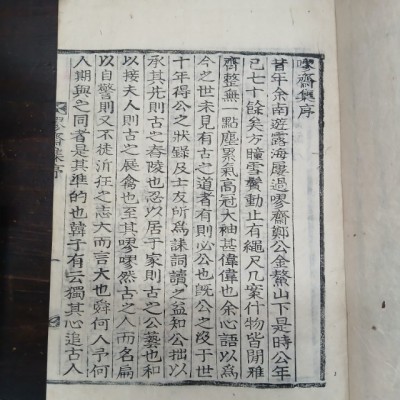 嘐齋集序
昔年余南遊露海屢過嘐齋鄭公金鰲山下是時公年
已七十餘矣方瞳雪鬢動止有繩尺几案什物皆閒雅
齊整無一點塵累氣高冠大袖甚偉偉也余心語以爲
今之世未見有古之道者有則必公也旣公之歿于世
十年得公之狀錄及士友所爲誄詞讀之益知公拙以
承其先則古之舂陵也忍以居于家則古之公藝也和
以接夫人則古之展禽也至其嘐嘐然古之人而名扁
以自警則又不徒近狂之志大而言大也舜何人予何
人期與之同者是其準的也韓子有云獨其心追古人
嘐齋集序 一